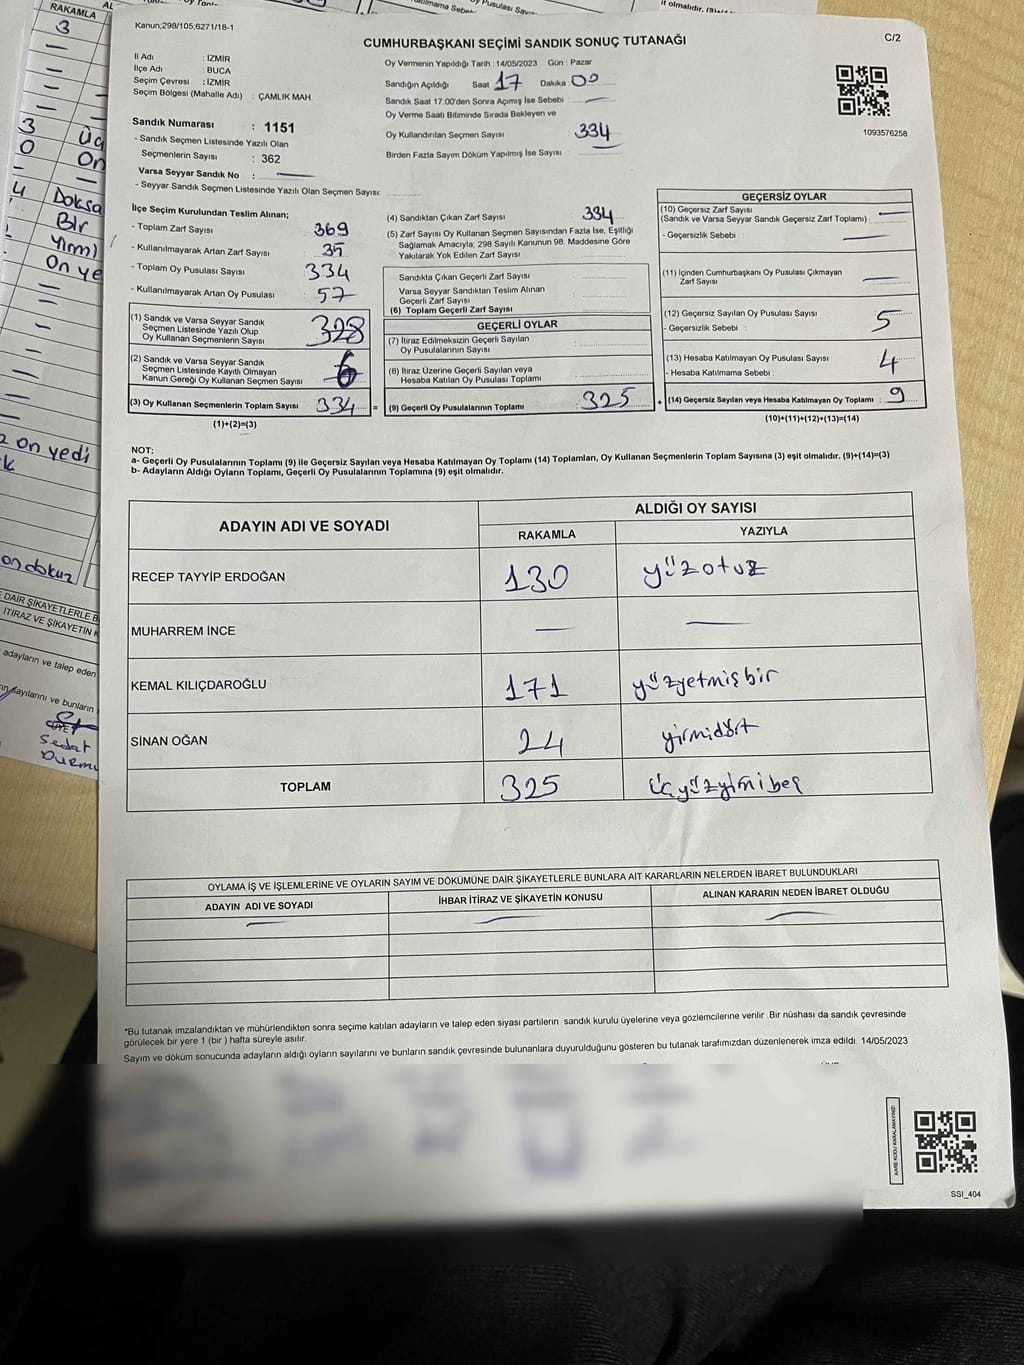 Kanun;298/105;6271/18-1
CUMHURBAŞKANI SEÇİMİ SANDIK SONUÇ TUTANAĞI
C/2
İl Adı : İZMİR
İlçe Adı : BUCA
Seçim Çevresi : İZMİR
Seçim Bölgesi (Mahalle Adı) : ÇAMLIK MAH.
Sandık Numarası : 1151
- Sandık Seçmen Listesinde Yazılı Olan
Seçmenlerin Sayısı : 362
Varsa Seyyar Sandık No : —
- Seyyar Sandık Seçmen Listesinde Yazılı Olan Seçmen Sayısı:
Oy Vermenin Yapıldığı Tarih : 14/05/2023 Gün : Pazar
Sandığın Açıldığı Saat 17 Dakika 00
Sandık Saat 17:00'den Sonra Açımış İse Sebebi : —
Oy Verme Saati Bitiminde Sırada Bekleyen ve
Oy Kullandırılan Seçmen Sayısı : 334
Birden Fazla Sayım Döküm Yapılmış İse Sayısı : —
1093576258
İlçe Seçim Kurulundan Teslim Alınan;
- Toplam Zarf Sayısı : 369
- Kullanılmayarak Artan Zarf Sayısı : 35
- Toplam Oy Pusulası Sayısı : 334
- Kullanılmayarak Artan Oy Pusulası : 57
(1) Sandık ve Varsa Seyyar Sandık
Seçmen Listesinde Yazılı Olup
Oy Kullanan Seçmenlerin Sayısı 328
(2) Sandık ve Varsa Seyyar Sandık
Seçmen Listesinde Kayıtlı Olmayan
Kanun Gereği Oy Kullanan Seçmen Sayısı 6
(3) Oy Kullanan Seçmenlerin Toplam Sayısı 334 =
(1)+(2)=(3)
(4) Sandıktan Çıkan Zarf Sayısı 334
(5) Zarf Sayısı Oy Kullanan Seçmen Sayısından Fazla İse, Eşitliği
Sağlamak Amacıyla; 298 Sayılı Kanunun 98. Maddesine Göre
Yakılarak Yok Edilen Zarf Sayısı :
Sandıkta Çıkan Geçerli Zarf Sayısı
Varsa Seyyar Sandıktan Teslim Alınan
Geçerli Zarf Sayısı :
(6) Toplam Geçerli Zarf Sayısı
GEÇERLİ OYLAR
(7) İtiraz Edilmeksizin Geçerli Sayılan
Oy Pusulalarının Sayısı :
(8) İtiraz Üzerine Geçerli Sayılan veya
Hesaba Katılan Oy Pusulası Toplamı :
(9) Geçerli Oy Pusulalarının Toplamı : 325 +
GEÇERSİZ OYLAR
(10) Geçersiz Zarf Sayısı
(Sandık ve Varsa Seyyar Sandık Geçersiz Zarf Toplamı) : —
- Geçersizlik Sebebi : —
(11) İçinden Cumhurbaşkanı Oy Pusulası Çıkmayan
Zarf Sayısı : —
(12) Geçersiz Sayılan Oy Pusulası Sayısı : 5
- Geçersizlik Sebebi :
(13) Hesaba Katılmayan Oy Pusulası Sayısı : 4
- Hesaba Katılmama Sebebi :
(14) Geçersiz Sayılan veya Hesaba Katılmayan Oy Toplamı : 9
(10)+(11)+(12)+(13)=(14)
NOT:
a- Geçerli Oy Pusulalarının Toplamı (9) ile Geçersiz Sayılan veya Hesaba Katılmayan Oy Toplamı (14) Toplamları, Oy Kullanan Seçmenlerin Toplam Sayısına (3) eşit olmalıdır. (9)+(14)=(3)
b- Adayların Aldığı Oyların Toplamı, Geçerli Oy Pusulalarının Toplamına (9) eşit olmalıdır.
ADAYIN ADI VE SOYADI
ALDIĞI OY SAYISI
RAKAMLA YAZIYLA
RECEP TAYYİP ERDOĞAN 130 yüzotuz
MUHARREM İNCE — —
KEMAL KILIÇDAROĞLU 171 yüzyetmişbir
SİNAN OĞAN 24 yirmidört
TOPLAM 325 üçyüzyirmibeş
OYLAMA İŞ VE İŞLEMLERİNE VE OYLARIN SAYIM VE DÖKÜMÜNE DAİR ŞİKAYETLERLE BUNLARA AİT KARARLARIN NELERDEN İBARET BULUNDUKLARI
ADAYIN ADI VE SOYADI İHBAR İTİRAZ VE ŞİKAYETİN KONUSU ALINAN KARARIN NEDEN İBARET OLDUĞU
— — —
*Bu tutanak imzalandıktan ve mühürlendikten sonra seçime katılan adayların ve talep eden siyasi partilerin sandık kurulu üyelerine veya gözlemcilerine verilir .Bir nüshası da sandık çevresinde
görülecek bir yere 1 (bir ) hafta süreyle asılır.
Sayım ve döküm sonucunda adayların aldığı oyların sayılarını ve bunların sandık çevresinde bulunanlara duyurulduğunu gösteren bu tutanak tarafımızdan düzenlenerek imza edildi. 14/05/2023
KARE KODU KARALAMAYINIZ!
SSI_404
RAKAMLA
3
3
0 On
4 Doksa
Bir
Yirmi
On ye
on yedi
on dokuz
DAİR ŞİKAYETLERLE B
İTİRAZ VE ŞİKAYETİN K
adayların ve talep eden
sayılarını ve bunların
Sedat